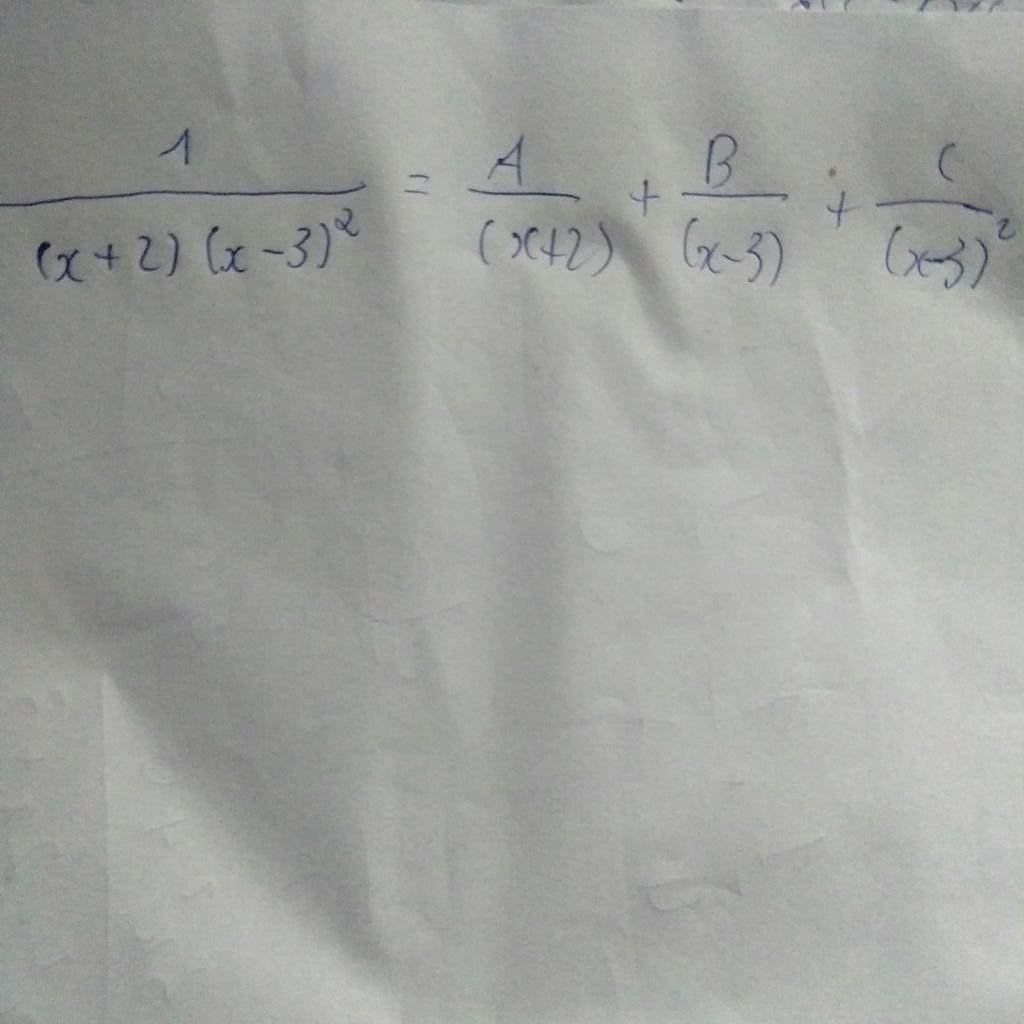 1/((x+2)(x-3)²) = A/(x+2) + B/(x-3) + C/(x-3)²